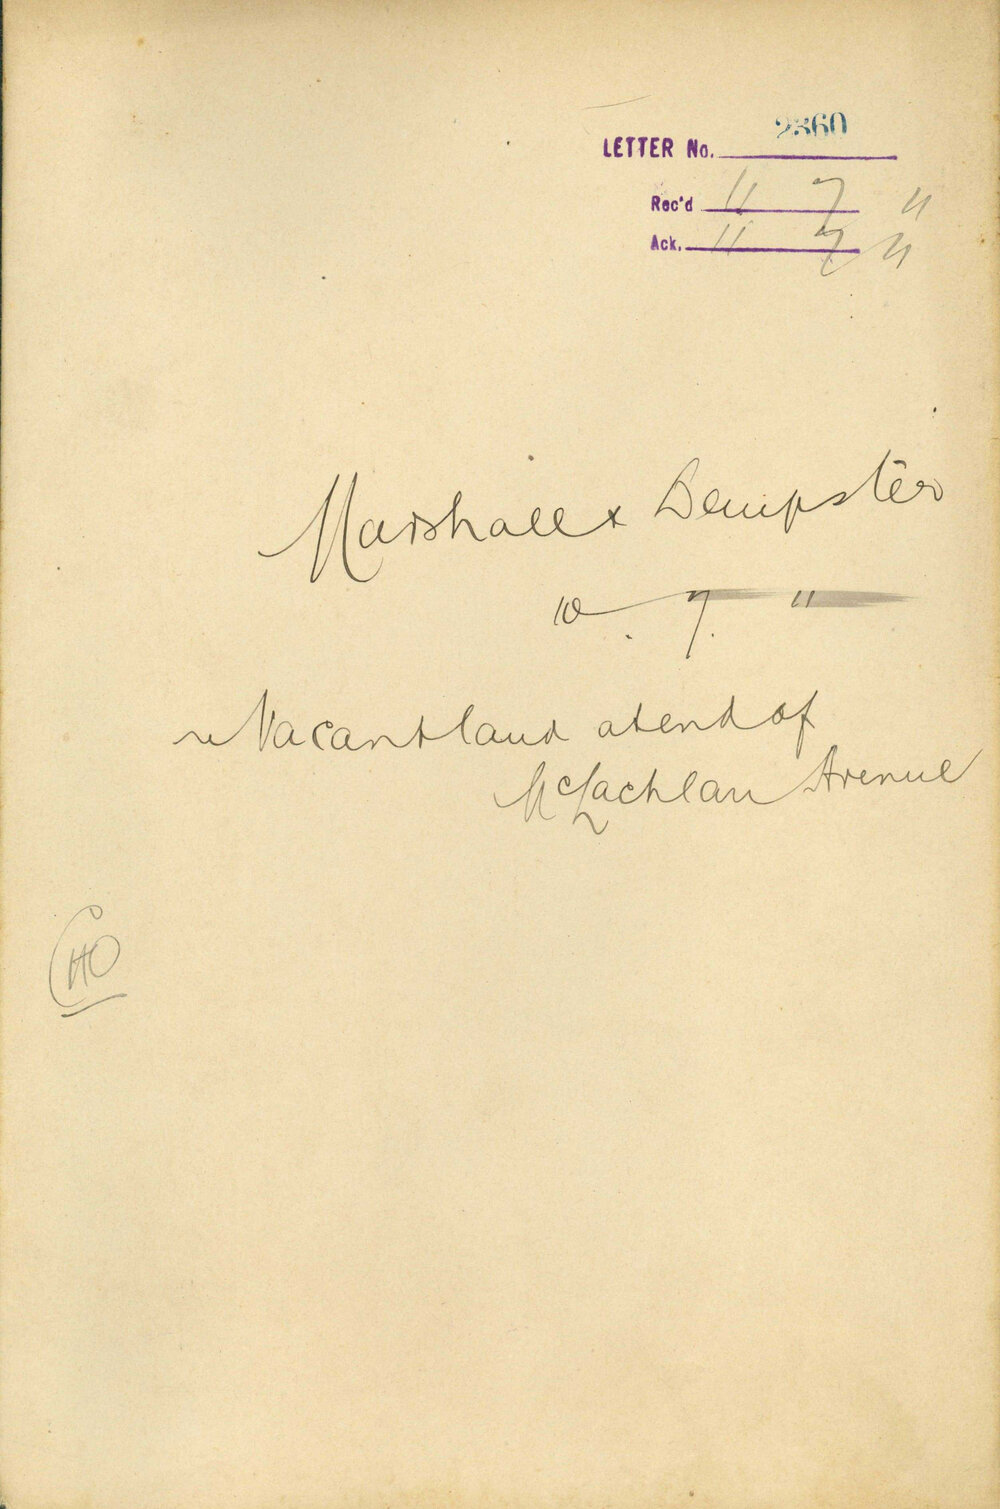 LETTER No. 2360
Rec'd 11 7 11
Ack. 11 7 11
Marshall & Dempster
10. 7. 11
re Vacant land at end of
McLachlan Avenue